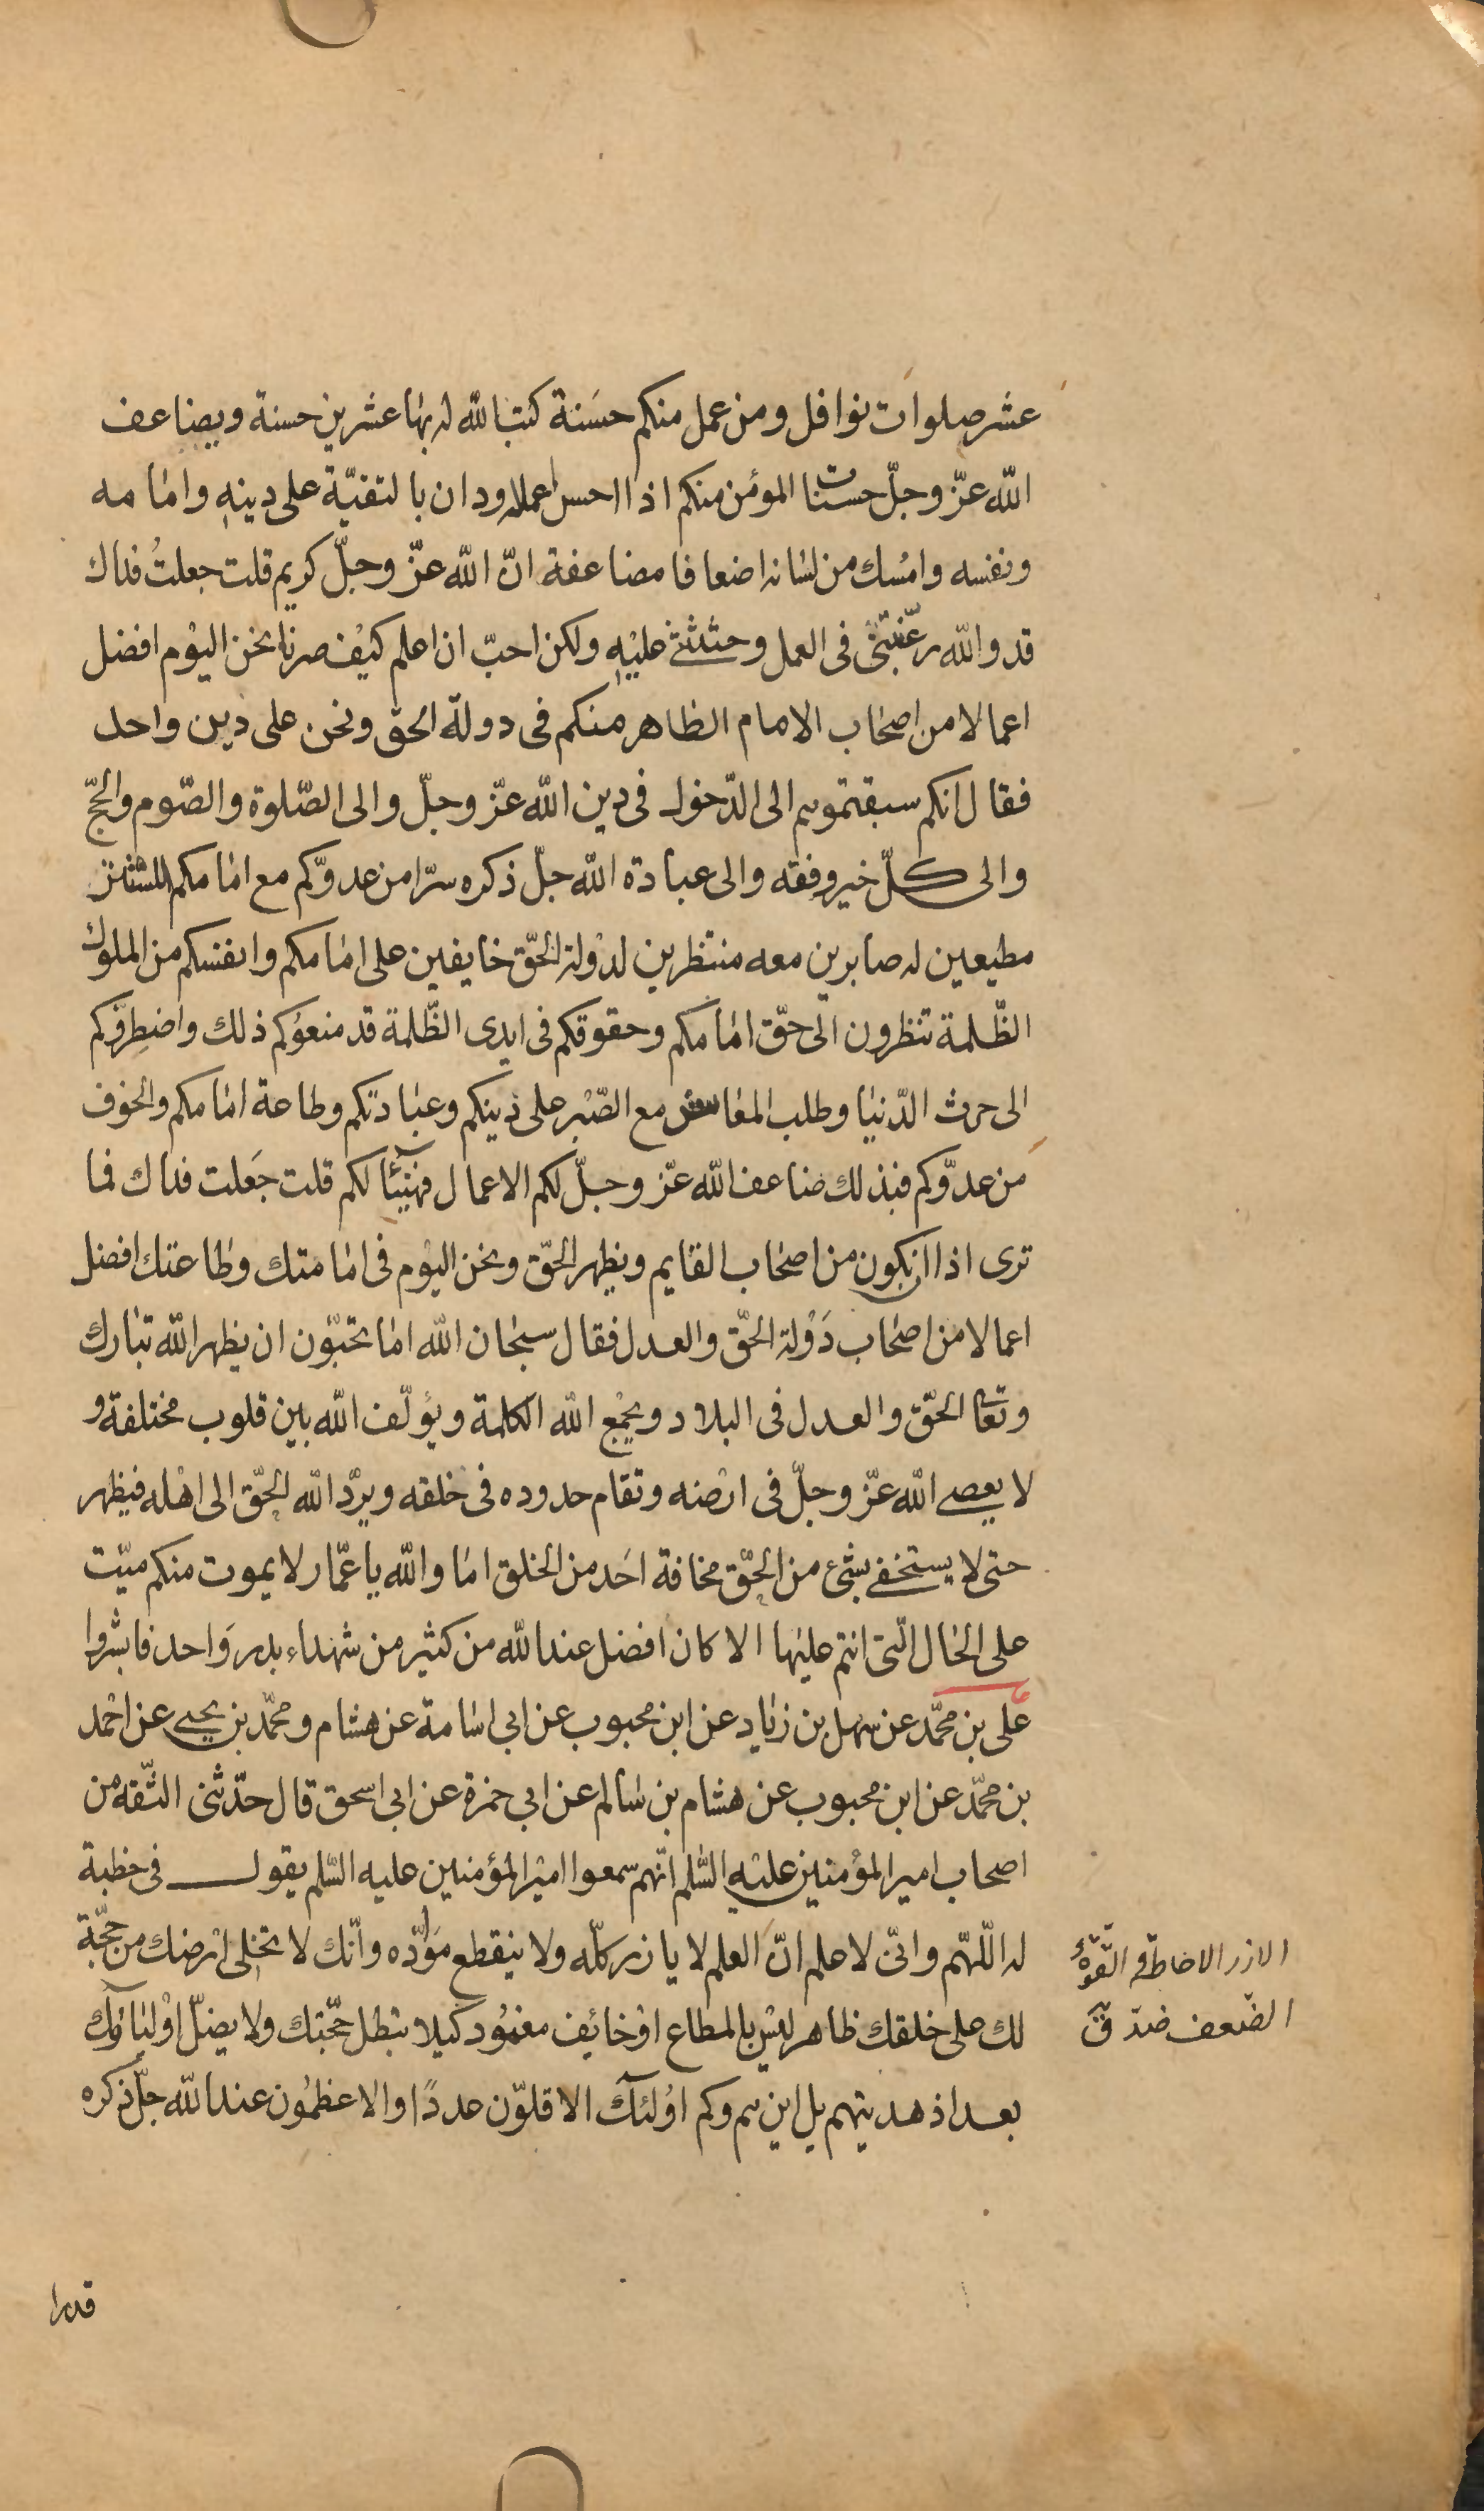 عشر صلوات نوافل ومن عمل منكم حسَنة كتب الله له بها عشرين حسنة ويضاعف
الله عزّ وجلّ حسنات المؤمن منكم اذا احسن اعماله ودان بالتقيّة على دينه وامامه
ونفسه وامْسك من لسانه اضعافا مضاعفة انّ الله عزّ وجلّ كريم قلت جعلتُ فداك
قد والله رغّبتنى فى العمل وحثثتنى عليْه ولكن احبّ ان اعلم كيْف صرنا نحن اليوْم افضل
اعمالا من اصحاب الامام الظاهر منكم فى دولة الحق ونحن على دين واحد
فقال انكم سبقتموهم الى الدّخول فى دين الله عزّ وجلّ والى الصّلوة والصّوم والحجّ
والى كلّ خير وفقه والى عبادة الله جلّ ذكره سرّا من عدوّكم مع امامكم المستتر
مطيعين له صابرين معه منتظرين لدوْلة الحقّ خايفين على امامكم وانفسكم من الملوك
الظّلمة تنظرون الى حقّ امامكم وحقوقكم فى ايدى الظّلمة قد منعوُكم ذلك واضطرّوكم
الى حرث الدّنيا وطلب المعاش مع الصّبْر على دينكم وعبادتكم وطاعة امامكم والخوف
من عدوّكم فبذلك ضاعف الله عزّ وجلّ لكم الاعمال فهنيْئًا لكم قلت جَعلت فداك فما
ترى اذا ان نكون من اصحاب القايم ويظهر الحقّ ونحن اليوْم فى امامتك وطاعتك افضل
اعمالا من اصحاب دَوْلة الحقّ والعدل فقال سبحان الله اما تحبّون ان يظهر الله تبارك
وتعالى الحقّ والعدل فى البلاد ويجمْع الله الكلمة ويؤلّف الله بين قلوب مختلفة و
لا يعصى الله عزّ وجلّ فى ارْضه وتقام حدوده فى خلقه ويردّ الله الحقّ الى اهْله فيظهر
حتى لا يستخفى بشئ من الحقّ مخافة احَد من الخلق اما والله يا عمّار لا يموت منكم ميّت
على الحال الّتى انتم عليْها الا كان افضل عند الله من كثير من شهداء بدر وَاحد فابشروا
على بن محمّد عن سهل بن زياد عن ابن محبوب عن ابى اسامة عن هشام ومحمّد بن يحيى عن احْمد
بن محمّد عن ابن محبوب عن هشام بن سالم عن ابى حمزة عن ابى اسحق قال حدّثنى الثّقه من
اصحاب امير المؤمنين عليْه السّلم انّهم سمعوا اميْر المؤمنين عليه السّلم يقول فى خطبة
له اللّهم وانّى لاعلم انّ العلم لا يازر كلّه ولا ينقطع موادّه وانّك لا تخلى ارْضك من حجّة
لك على خلقك ظاهر ليْس بالمطاع اوْ خائف مغموُد كيلا تبْطل حجّتك ولا يضلّ اوْلياؤك
بعد اذ هديتهم بل اين هم وكم اوُلئك الاقلوّن عددًا والاعظمُون عند الله جلّ ذكره
الازر الاحاطة و القوّة
الضّعف ضدّ ق
قدرا